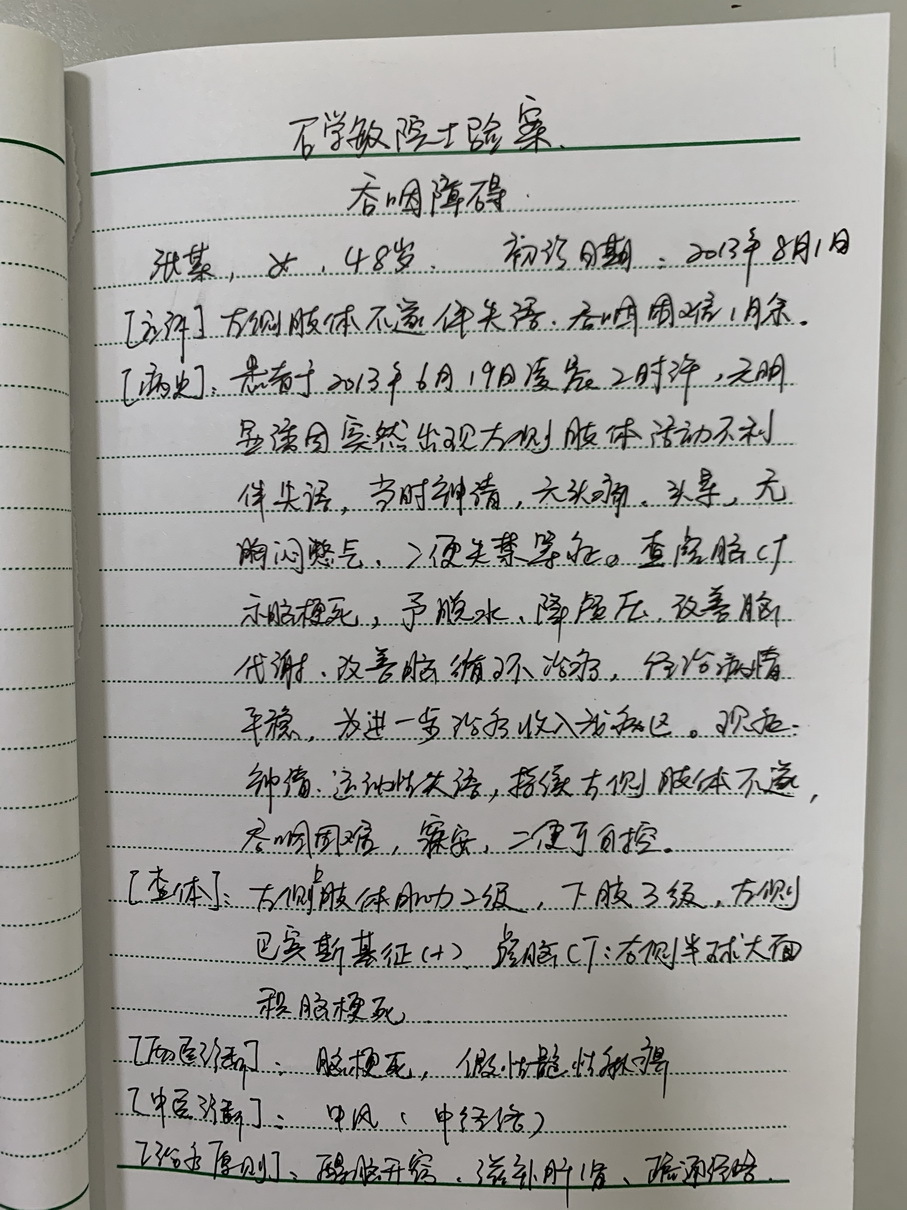 石学敏院士验案.
吞咽障碍.
张某,女,48岁. 初诊日期:2013年8月1日
[主诉]左侧肢体不遂伴失语、吞咽困难1月余.
[病史]:患者于2013年6月19日凌晨2时许,无明
显诱因突然出现左侧肢体活动不利
伴失语,当时神清,无头痛、头晕,无
胸闷憋气、二便失禁等症。查颅脑CT
示脑梗死,予脱水、降颅压、改善脑
代谢、改善脑循环治疗,经治病情
平稳,为进一步治疗收入我病区。现症:
神清、运动性失语,持续左侧肢体不遂,
吞咽困难,寐安,二便可自控。
[查体]:左侧上肢体肌力2级,下肢3级,左侧
巴宾斯基征(+).颅脑CT:右侧半球大面
积脑梗死
[西医诊断]:脑梗死,假性髓性麻痹
[中医诊断]:中风(中经络)
[治疗原则]:醒脑开窍、滋补肝肾、疏通经络.